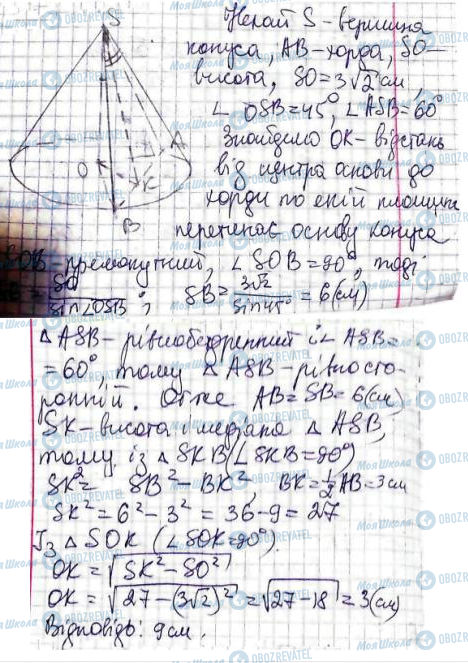 S
O
K
A
B
Нехай S - вершина
конуса, AB - хорда, SO -
висота, SO = 3√2 см,
∠ OSB = 45°, ∠ ASB = 60°
Знайдемо OK - відстань
від центра основи до
хорди по якій площина
перетинає основу конуса
SOB - прямокутний, ∠ SOB = 90°, тоді
SB = SO / sin∠OSB ; SB = 3√2 / sin 45° = 6 (см)
△ ASB - рівнобедренний і ∠ ASB =
= 60°, тому △ ASB - рівносто-
ронній. Отже AB = SB = 6 (см)
SK - висота і медіана △ ASB,
тому із △ SKB (∠ SKB = 90°)
SK² = SB² - BK², BK = 1/2 AB = 3 см
SK² = 6² - 3² = 36 - 9 = 27
Із △ SOK (∠ SOK = 90°)
OK = √(SK² - SO²)
OK = √(27 - (3√2)²) = √(27 - 18) = 3 (см)
Відповідь: 9 см.